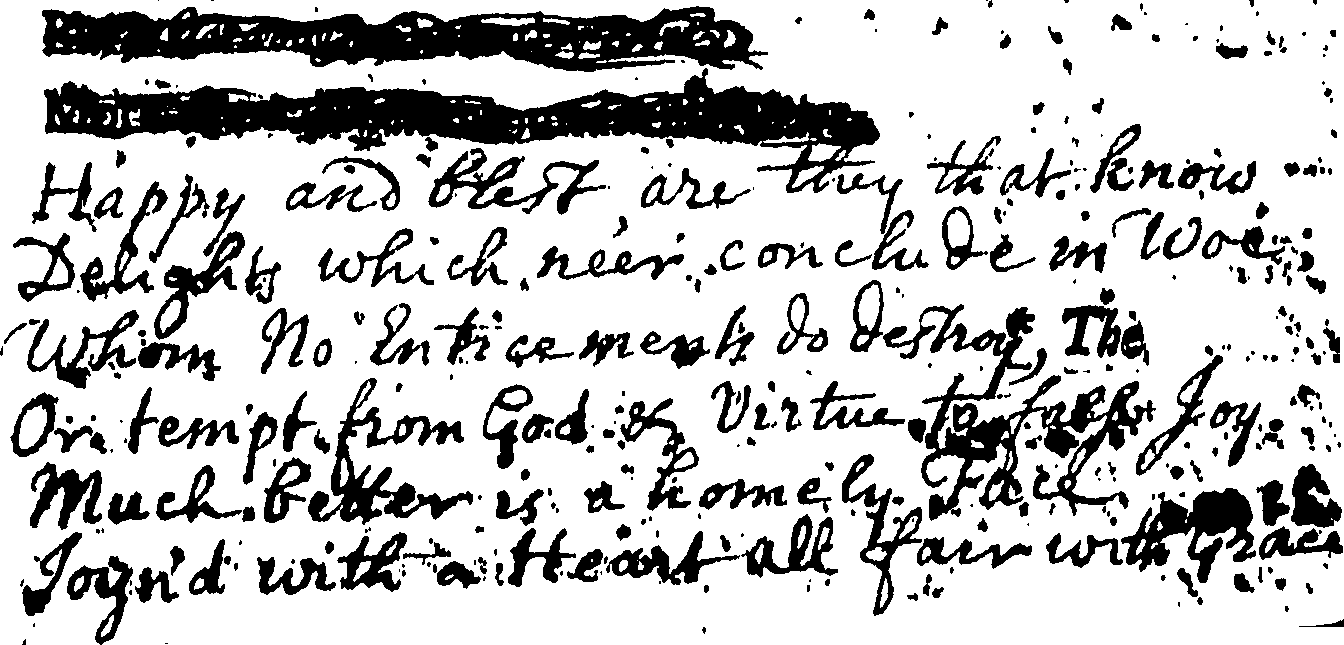 Happy and blest are they that know
Delights which ne'er conclude in Woe
Whom No Enticements do destroy, The
Or tempt from God & Virtue to false Joy.
Much better is a homely Face
Joyn'd with a Heart all fair with Grace